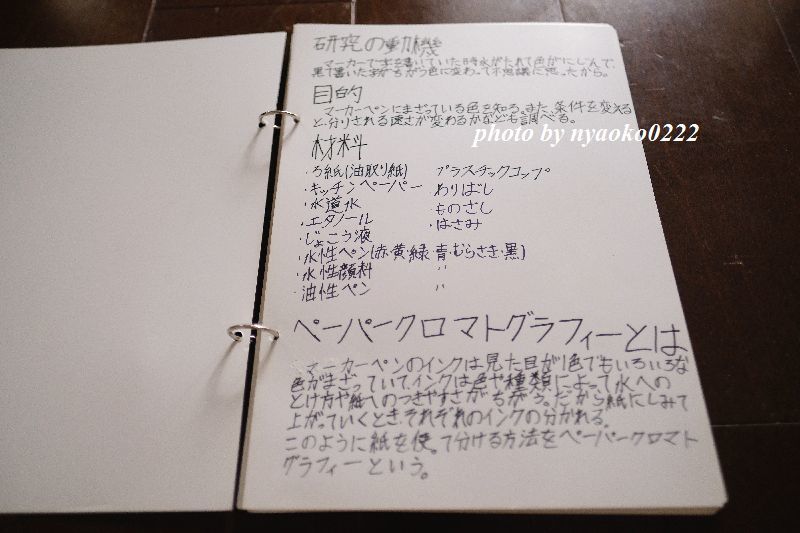 研究の動機
マーカーで字を書いていた時水がたれて色がにじんで、
黒で書いた字がちがう色に変わって不思議に思ったから。
目的
マーカーペンにまざっている色を知る。また、条件を変える
と、分りされる速さが変わるかなども調べる。
photo by nyaoko0222
材料
・ろ紙(油取り紙) プラスチックコップ
・キッチンペーパー ・わりばし
・水道水 ・ものさし
・エタノール ・はさみ
・じょこう液
・水性ペン(赤・黄・緑・青・むらさき・黒)
・水性顔料 〃
・油性ペン 〃
ペーパークロマトグラフィーとは
マーカーペンのインクは見た目が1色でもいろいろな
色がまざっていて、インクは色や種類によって水への
とけ方や紙へのつきやすさがちがう。だから紙にしみて
上がっていくとき、それぞれのインクの分かれる。
このように紙を使って分ける方法をペーパークロマト
グラフィーという。